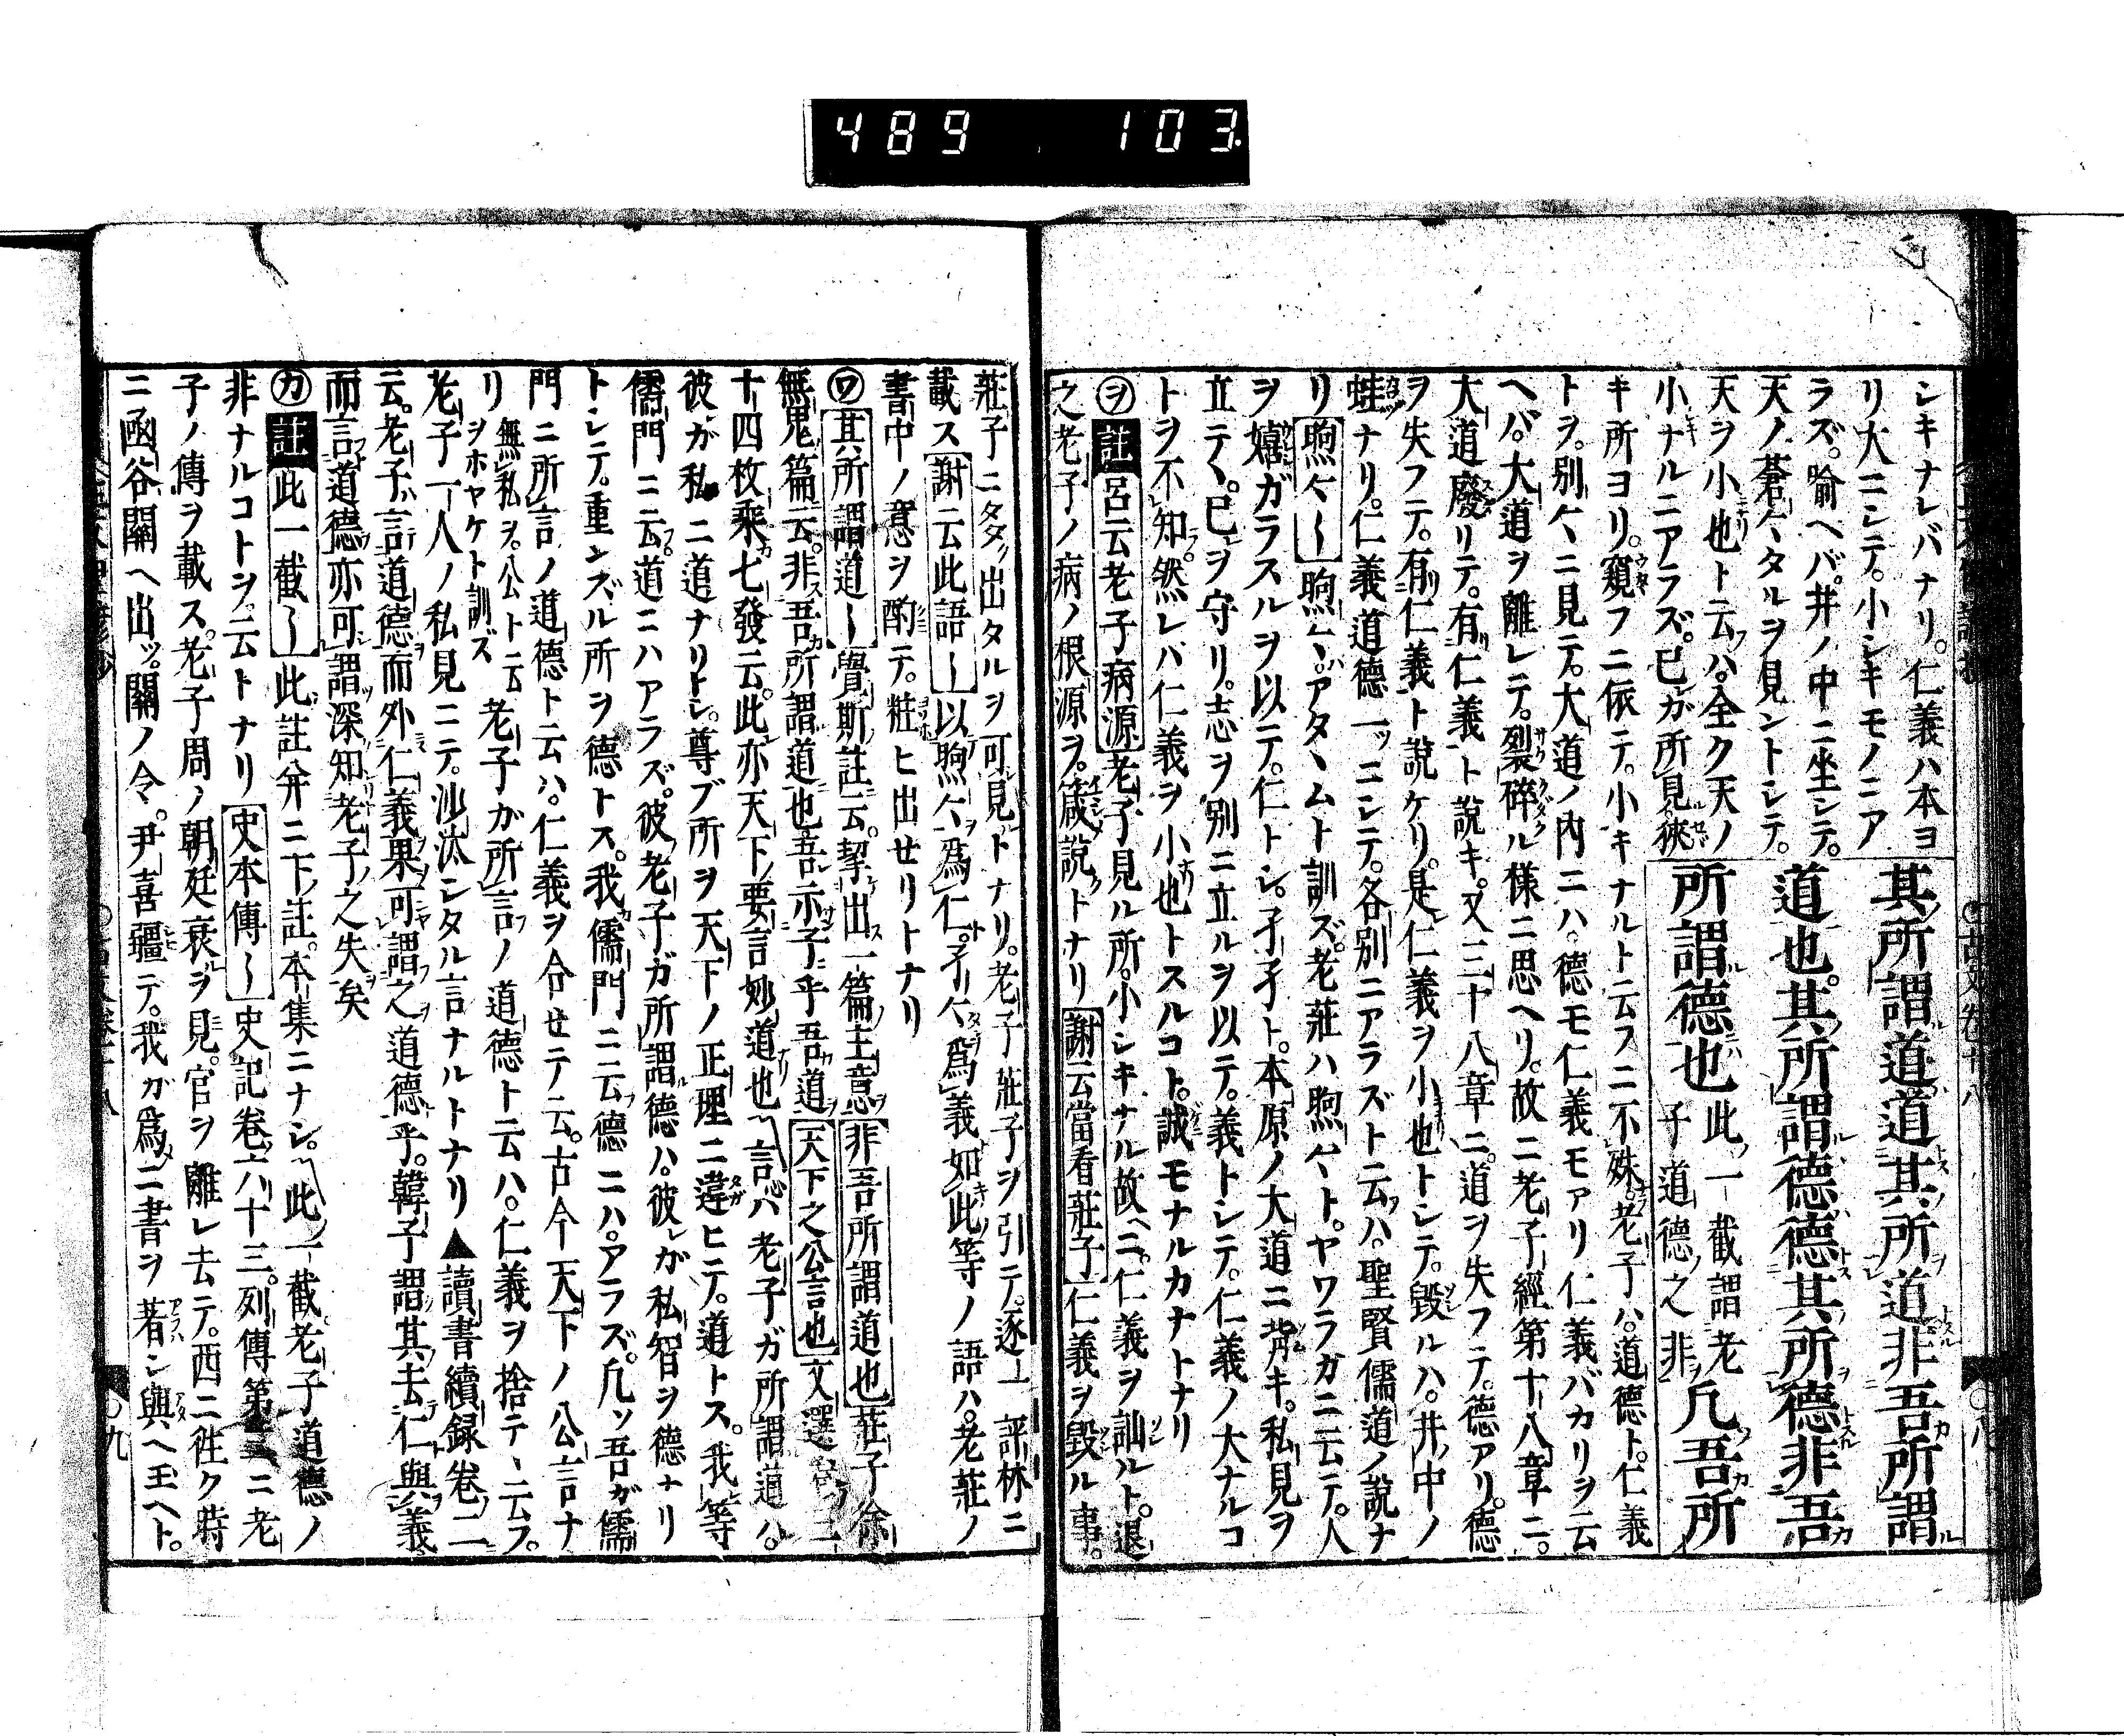 489 103.
シキナレバナリ。仁義ハ本ヨ
リ大ニシテ。小シキモノニア
ラズ。喩ヘバ。井ノ中ニ坐シテ。
天ノ蒼〻タルヲ見ントシテ。
天ヲ小也ト云ハ。全ク天ノ
小ナルニアラズ。已ガ所見狹
其所謂道道其所道非吾所謂
道也。其所謂德德其所德非吾
所謂德也
此一截謂老
子道德之非
凡吾所
キ所ヨリ。窺フニ依テ。小キナルト云フニ不殊。老子ハ。道德ト。仁義
トヲ。別〻ニ見テ。大道ノ内ニハ。德モ仁義モアリ仁義バカリヲ云
ヘバ。大道ヲ離レテ。裂碎ル樣ニ思ヘリ。故ニ老子經第十八章ニ。
大道廢リテ。有仁義ト説キ。又三十八章ニ。道ヲ失フテ。德アリ。德
ヲ失フテ。有仁義ト説ケリ。是仁義ヲ小也トシテ。毀ルハ。井中ノ
蛙ナリ。仁義道德一ツニシテ。各別ニアラズト云ハ。聖賢儒道ノ説ナ
リ煦〻〜煦〻。アタヽムト訓ズ。老莊ハ煦〻ト。ヤワラガニ云テ。人
ヲ嬉ガラスルヲ以テ。仁トシ。孑孑ト。本原ノ大道ニ背キ。私見ヲ
立テヽ。已ヲ守リ。志ヲ別ニ立ルヲ以テ。義トシテ。仁義ノ大ナルコ
トヲ不知。然レバ仁義ヲ小也トスルコト。誠モナルカナトナリ
ヲ註呂云老子病源老子見ル所。小シキナル故ヘニ。仁義ヲ訕ルト。退
之老子ノ病ノ根源ヲ。箴説トナリ謝云當看莊子仁義ヲ毀ル事。
莊子ニタヾ出タルヲ可見トナリ。老子莊子ヲ引テ。逐一評林ニ
載ス謝云此語〜以煦〻爲仁。孑〻爲義如此等ノ語ハ。老莊ノ
書中ノ意ヲ酌テ。粧ヒ出セリトナリ
ワ其所謂道〜覺斯註云。挈出一篇主意非吾所謂道也莊子徐
無鬼篇云。非吾所謂道也吾示子乎吾道天下之公言也文選
十四枚乘七發云。此亦天下要言妙道也言ハ老子ガ所謂道ハ。
彼ガ私ニ道ナリトシ。尊ブ所ヲ天下ノ正理ニ違ヒテ。道トス。我等
儒門ニ云道ニハアラズ。彼老子ガ所謂德ハ。彼ガ私智ヲ德ナリ
トシテ。重ンズル所ヲ德トス。我儒門ニ云德ニハ。アラズ。凡ソ吾ガ儒
門ニ所言ノ道德ト云ハ。仁義ヲ合セテ云。古今天下ノ公言ナ
リ無私ヲ。公ト云ヲホヤケト訓ズ老子ガ所言ノ道德ト云ハ。仁義ヲ捨テヽ云フ。
老子一人ノ私見ニテ。沙汰シタル言ナルトナリ▲讀書續録卷二
云。老子言道德而外仁義果可謂之道德乎。韓子謂其去仁與義
而言道德亦可謂深知老子之失矣
カ註此一截〜此註并ニ下註。本集ニナシ。此一截老子道德ノ
非ナルコトヲ云トナリ史本傳〜史記卷六十三。列傳第三ニ老
子ノ傳ヲ載ス。老子周ノ朝廷衰ヲ見。官ヲ離レ去テ。西ニ徃ク時
ニ函谷關ヘ出ツ。關ノ令。尹喜彊テ。我ガ爲ニ書ヲ著シ與ヘ玉ヘト。